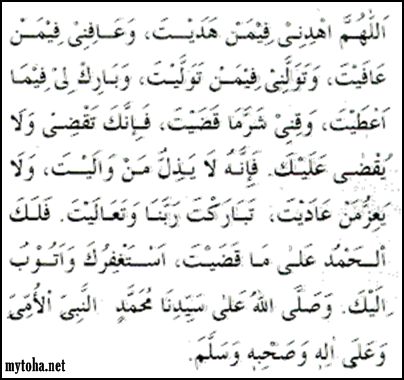 اَللّٰهُمَّ اهْدِنِىْ فِيْمَنْ هَدَيْتَ، وَعَافِنِىْ فِيْمَنْ
عَافَيْتَ، وَتَوَلَّنِىْ فِيْمَنْ تَوَلَّيْتَ، وَبَارِكْ لِىْ فِيْمَا
اَعْطَيْتَ، وَقِنِىْ شَرَّمَا قَضَيْتَ، فَاِنَّكَ تَقْضِىْ وَلَا
يُقْضٰى عَلَيْكَ. فَاِنَّهُ لَا يَذِلُّ مَنْ وَالَيْتَ، وَلَا
يَعِزُّمَنْ عَادَيْتَ، تَبَارَكْتَ رَبَّنَا وَتَعَالَيْتَ. فَلَكَ
الْحَمْدُ عَلٰى مَا قَضَيْتَ، اَسْتَغْفِرُكَ وَاَتُوْبُ
اِلَيْكَ. وَصَلَّى اللهُ عَلٰى سَيِّدِنَا مُحَمَّدٍ النَّبِيِّ الْاُمِّيِّ
وَعَلٰى اٰلِهِ وَصَحْبِهِ وَسَلَّمَ.
mytoha.net